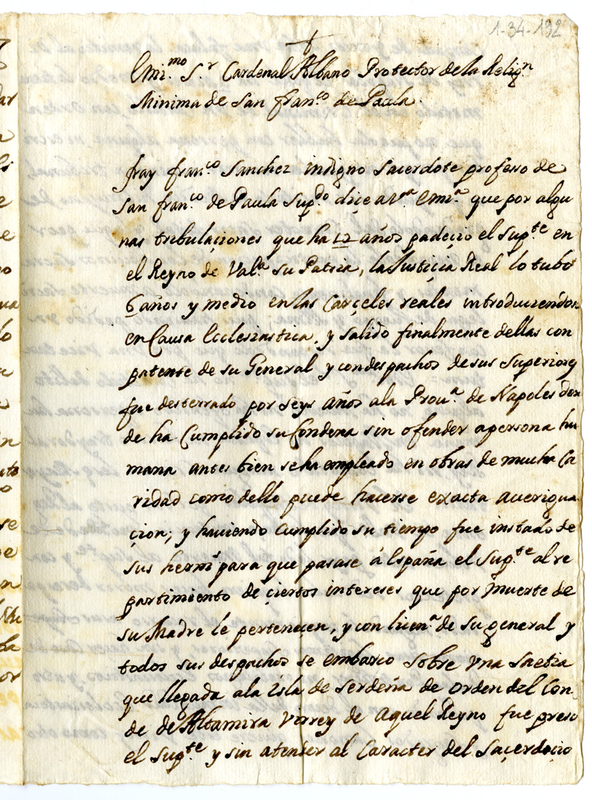 1-34-192
Emi.mo S.r Cardenal Albano Protector de la Relig.n
Minima de San fran.co de Paula.
fray fran.co Sanchez indigno Sacerdote profeso de
San fran.co de Paula Sup.do diçe a V.ra Emi.a que por algu
nas tribulaçiones que ha 12 años padecio el Sup.te en
el Reyno de Val.a su Patria, la Justiçia Real lo tubo
6 años y medio en las Carçeles reales introduciendose
en Causa Ecclesiastica, y salido finalmente dellas con
patente de su General y con despachos de sus Superiores
fue desterrado por seys años ala Prou.a de Napoles don
de ha Cumplido su Condena sin ofender apersona hu
mana antes bien se ha empleado en obras de mucha Ca
ridad como dello puede hacerse exacta auerigua
çion; y haviendo Cumplido su tiempo fue instado de
sus herm.s para que pasase â España el Sup.te al re
partimiento de çiertos intereses que por muerte de
su Madre le pertenecen, y con licen.a de su general y
todos sus despachos se embarco sobre Vna Saetia
que llegada ala Isla de Serdeña de orden del Con-
de de Altamira Virrey de Aquel Reyno fue preso
el Sup.te y sin atender al Caracter del Saçerdoçio